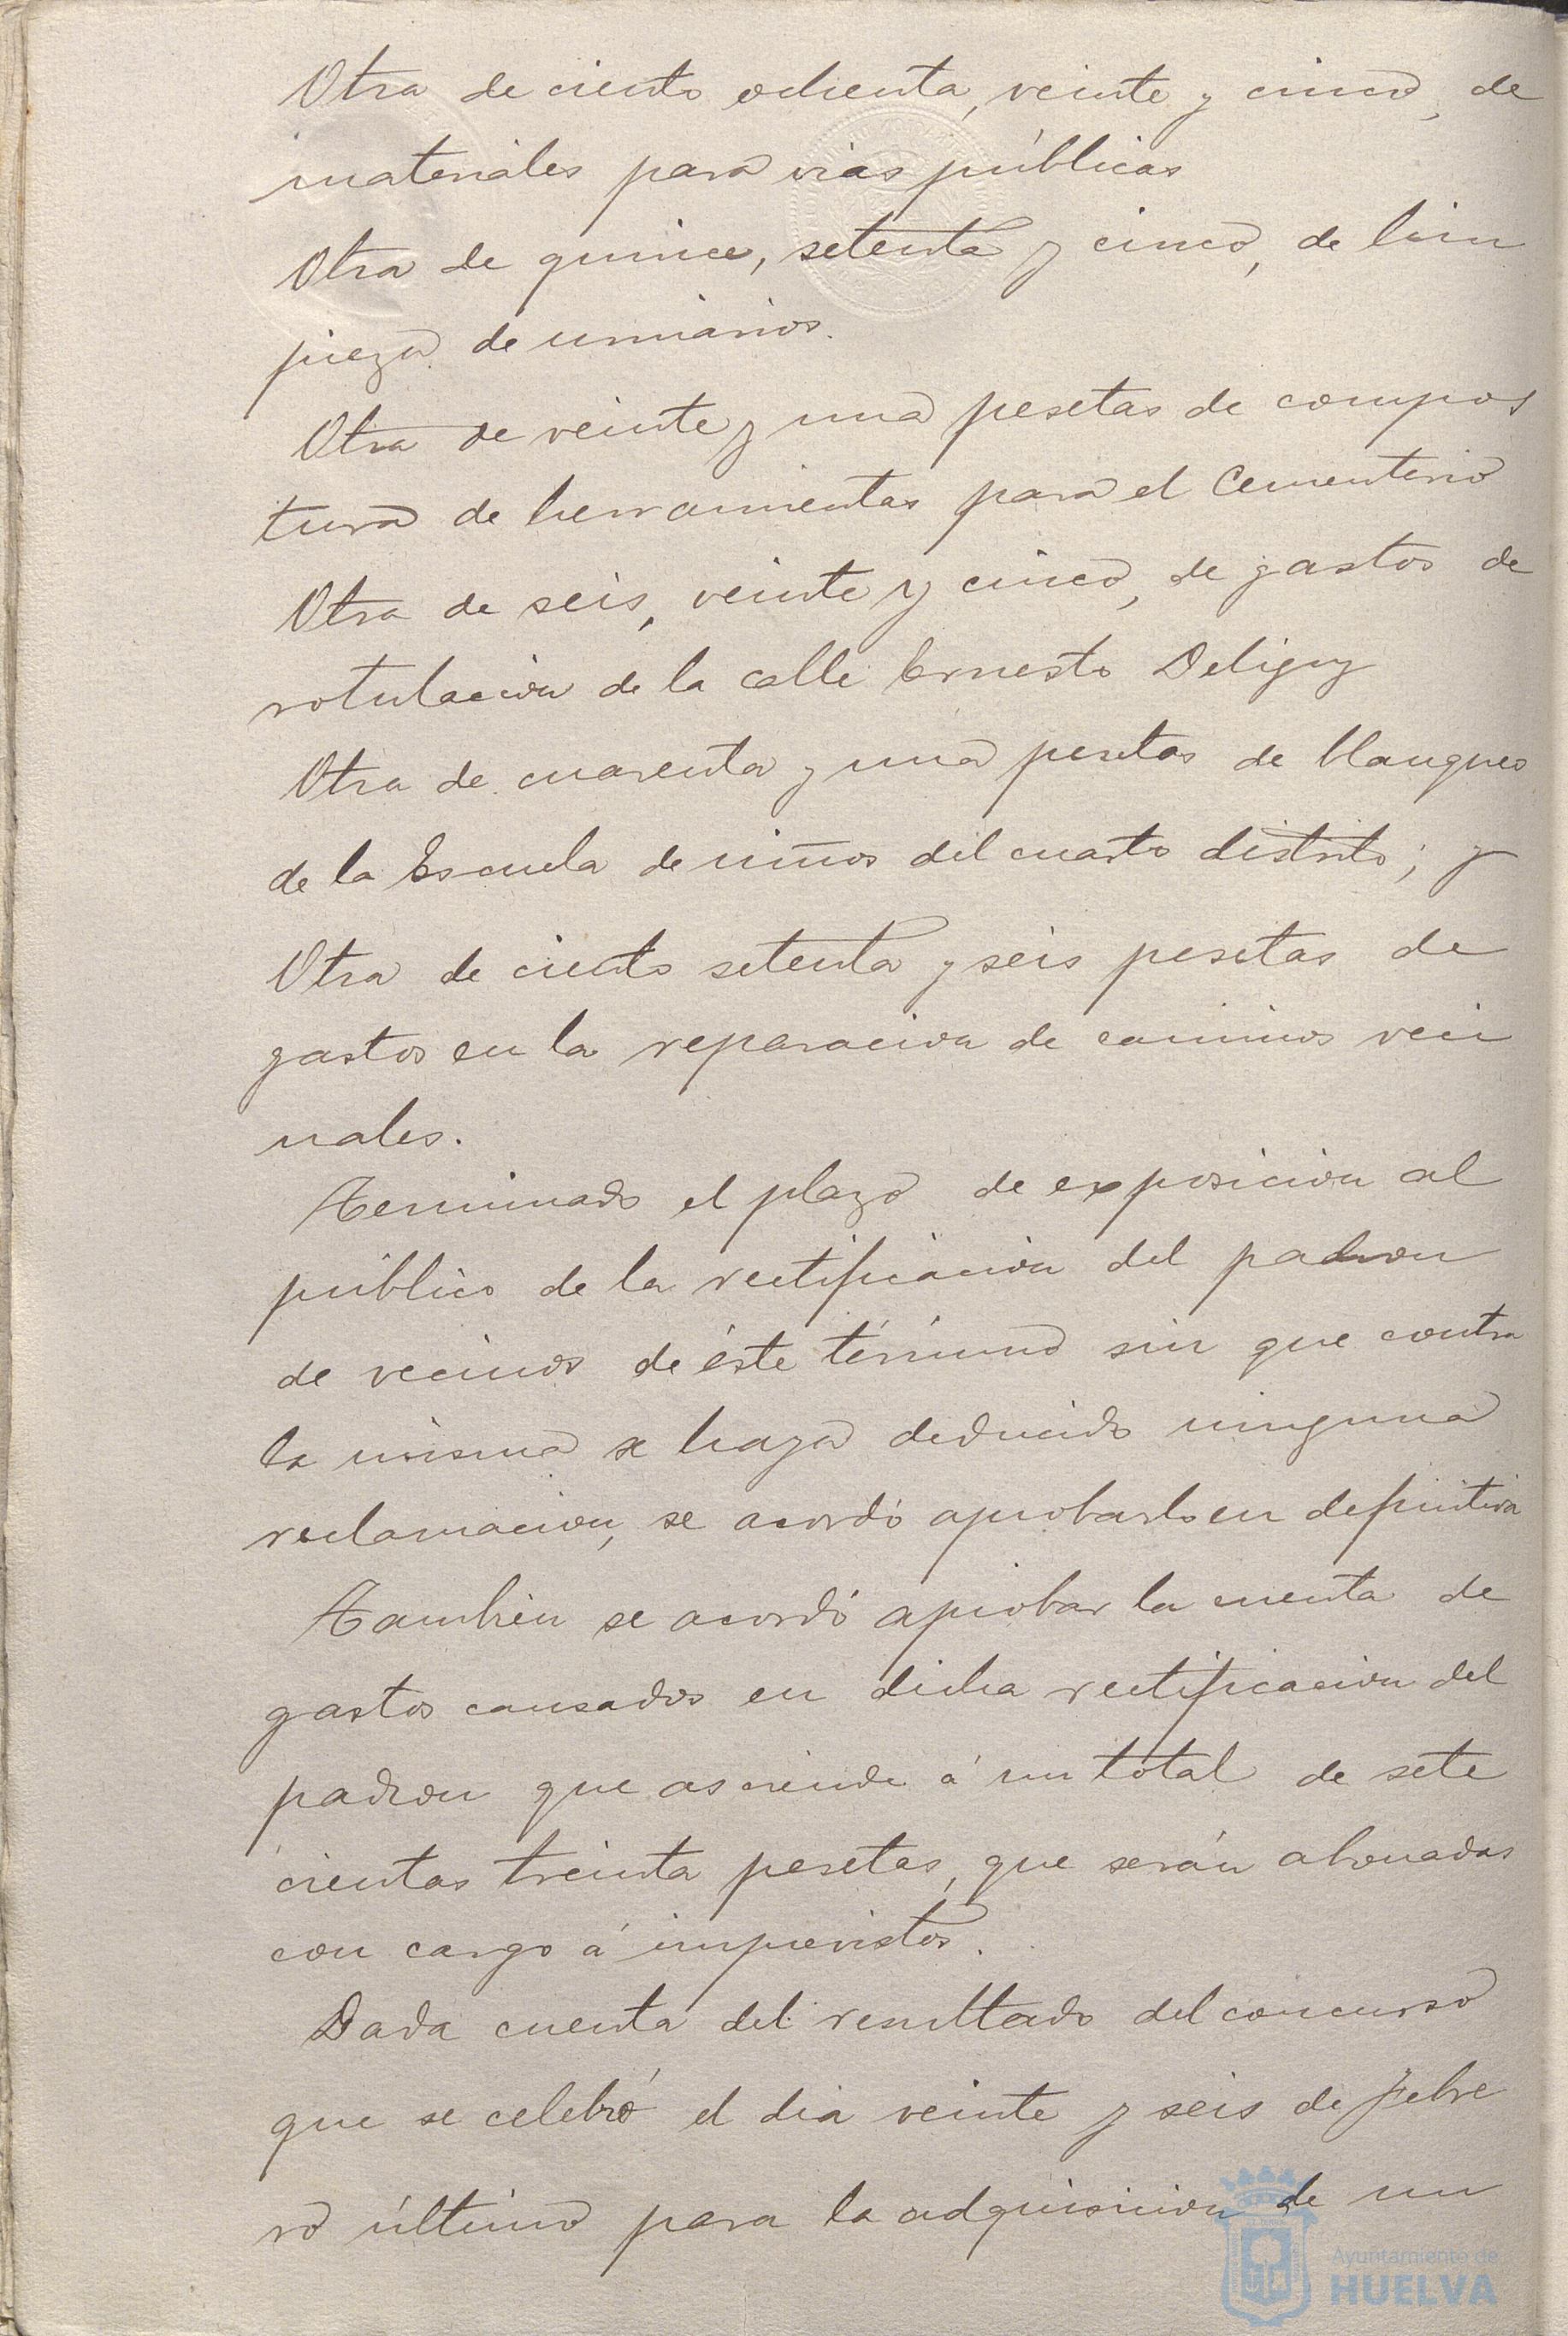 Otra de ciento ochenta, veinte y cinco, de
materiales para vias públicas
Otra de quince, setenta y cinco, de lim
pieza de urinarios.
Otra de veinte y una pesetas de compos
tura de herramientas para el Cementerio
Otra de seis, veinte y cinco, de gastos de
rotulacion de la calle Ernesto Deligny
Otra de cuarenta y una pesetas de blanqueo
de la Escuela de niños del cuarto distrito; y
Otra de ciento setenta y seis pesetas de
gastos en la reparacion de caminos veci
nales.
Terminado el plazo de exposicion al
público de la rectificacion del padron
de vecinos de éste término sin que contra
la misma se haya deducido ninguna
reclamacion, se acordó aprobarlo en definitiva
Tambien se acordó aprobar la cuenta de
gastos causados en dicha rectificacion del
padron que asciende á un total de sete
cientas treinta pesetas, que serán abonadas
con cargo á imprevistos.
Dada cuenta del resultado del concurso
que se celebró el dia veinte y seis de febre
ro último para la adquisicion de un
Ayuntamiento de
HUELVA